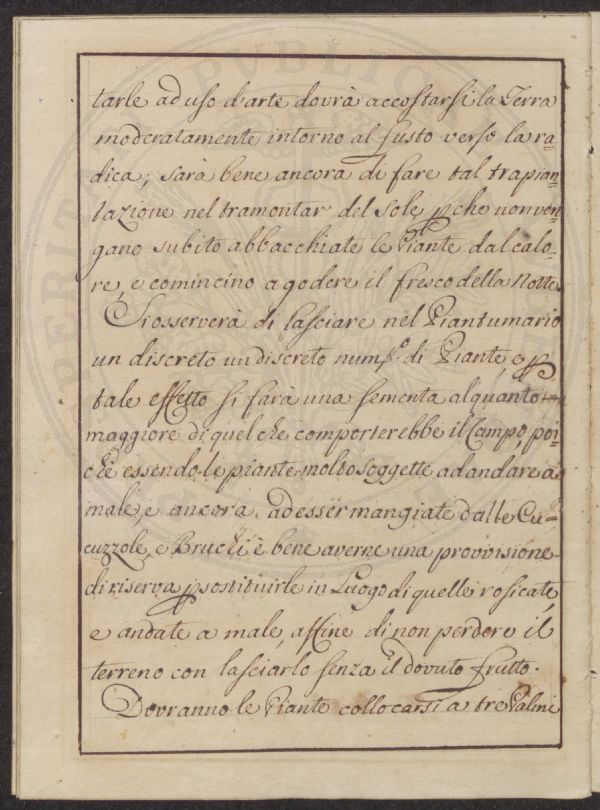 tarle ad uso d'arte dovrà accostarsi la Terra
moderatamente intorno al fusto verso la ra=
dica; sarà bene ancora di fare tal trapian=
tazione nel tramontar del sole pche non ven=
gano subito abbacchiate le Piante dal calo=
re, e comincino a godere il fresco della Notte.
Si osserverà di lasciare nel Piantumario
un discreto un discreto num.o di Piante, e p
tale effetto si farà una sementa alquanto
maggiore di quel che comporterebbe il Campo, poi=
chè essendo le piante molto soggette ad andare a
male, e ancora ad essër mangiate dalle Cu=
cuzzole, e Bruchi è bene averne una provvisione
di riserva p sostituirle in Luogo di quelle rosicate,
e andate a male, affine di non perdere il
terreno con lasciarlo senza il dovuto frutto.
Dovranno le Piante collocarsi a tre Palmi
PERITI PUBLICO